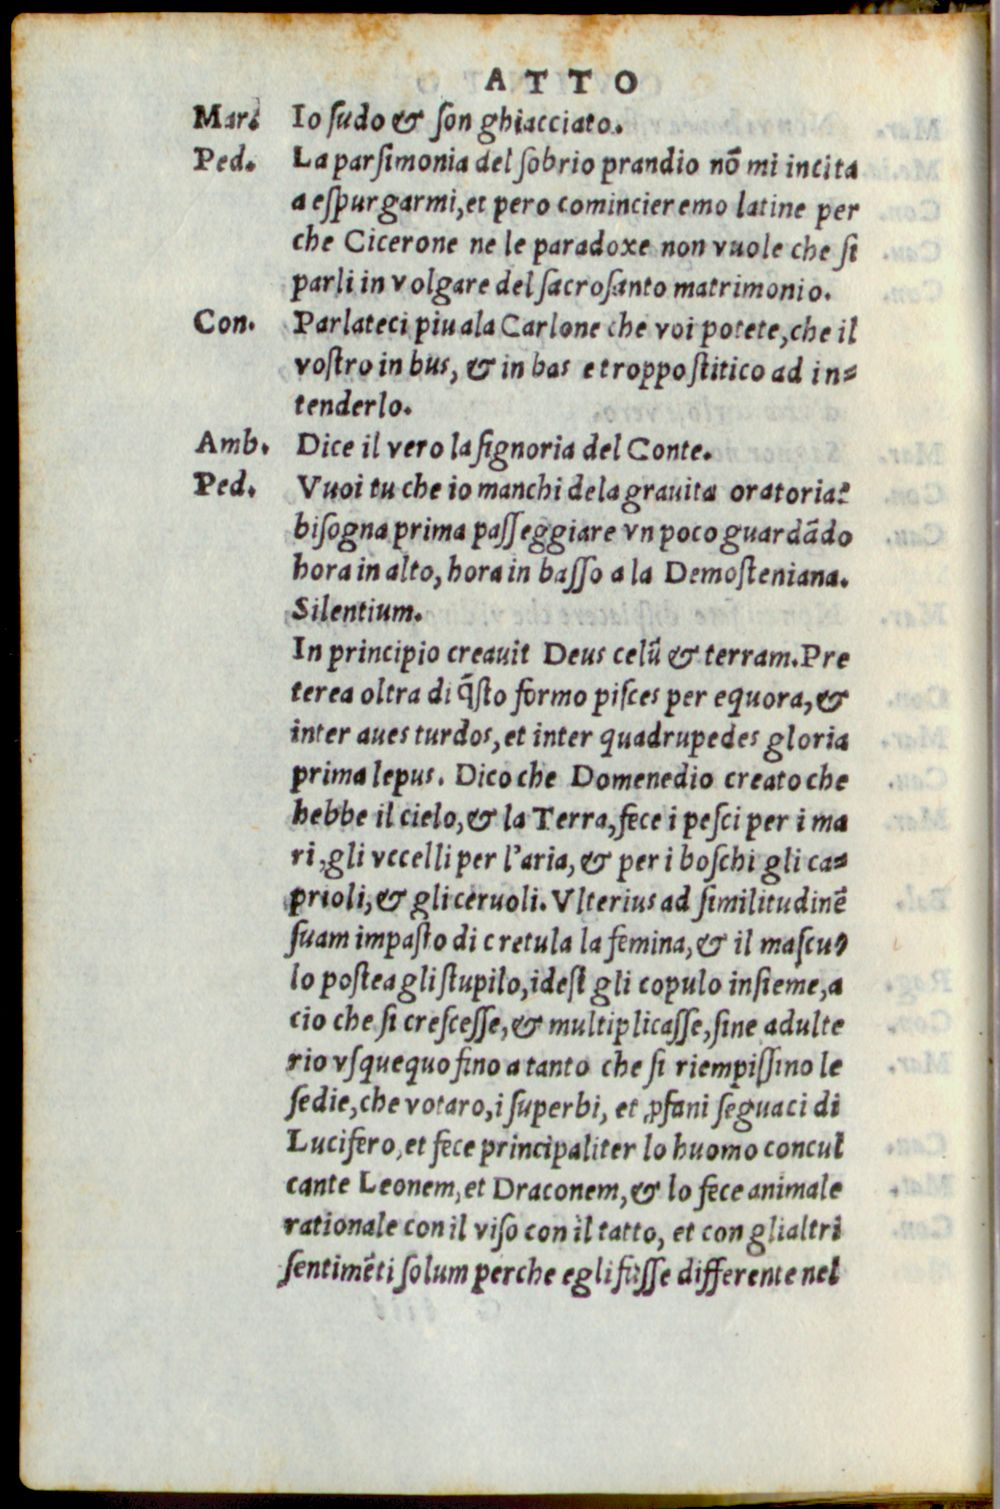 ATTO
Mar. Io sudo & son ghiacciato.
Ped. La parsimonia del sobrio prandio nō mi incita
a espurgarmi, et pero comincieremo latine per
che Cicerone ne le paradoxe non vuole che si
parli in volgare del sacrosanto matrimonio.
Con. Parlateci piu ala Carlone che voi potete, che il
vostro in bus, & in bas e troppo stitico ad in=
tenderlo.
Amb. Dice il vero la signoria del Conte.
Ped. Vuoi tu che io manchi dela grauita oratoria?
bisogna prima passeggiare vn poco guardādo
hora in alto, hora in basso a la Demosteniana.
Silentium.
In principio creauit Deus celū & terram. Pre
terea oltra di q̄sto formo pisces per equora, &
inter aues turdos, et inter quadrupedes gloria
prima lepus. Dico che Domenedio creato che
hebbe il cielo, & la Terra, fece i pesci per i ma
ri, gli vccelli per l'aria, & per i boschi gli ca=
prioli, & gli ceruoli. Vlterius ad similitudinē
suam impasto di cretula la femina, & il mascu=
lo postea gli stupilo, idest gli copulo insieme, a
cio che si crescesse, & multiplicasse, sine adulte
rio vsquequo fino a tanto che si riempissino le
sedie, che votaro, i superbi, et ꝓfani seguaci di
Lucifero, et fece principaliter lo huomo concul
cante Leonem, et Draconem, & lo fece animale
rationale con il viso con il tatto, et con gli altri
sentimēti solum perche egli fusse differente nel